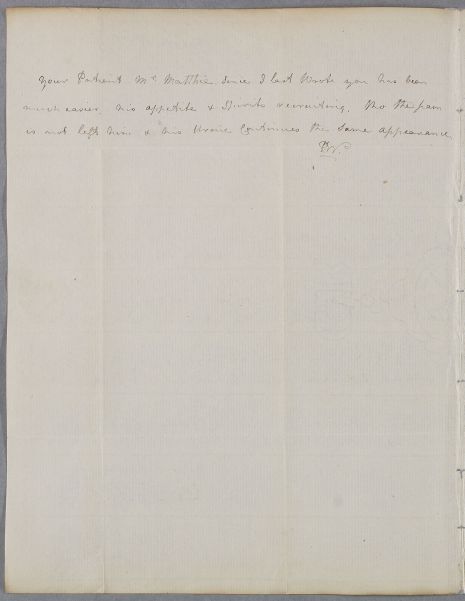 Your Patient Mr Matthie since I last Wrote you has been
much easier, his appetite & Spirits recruiting, tho the pain
is not left him & his Urine Continues the Same appearance